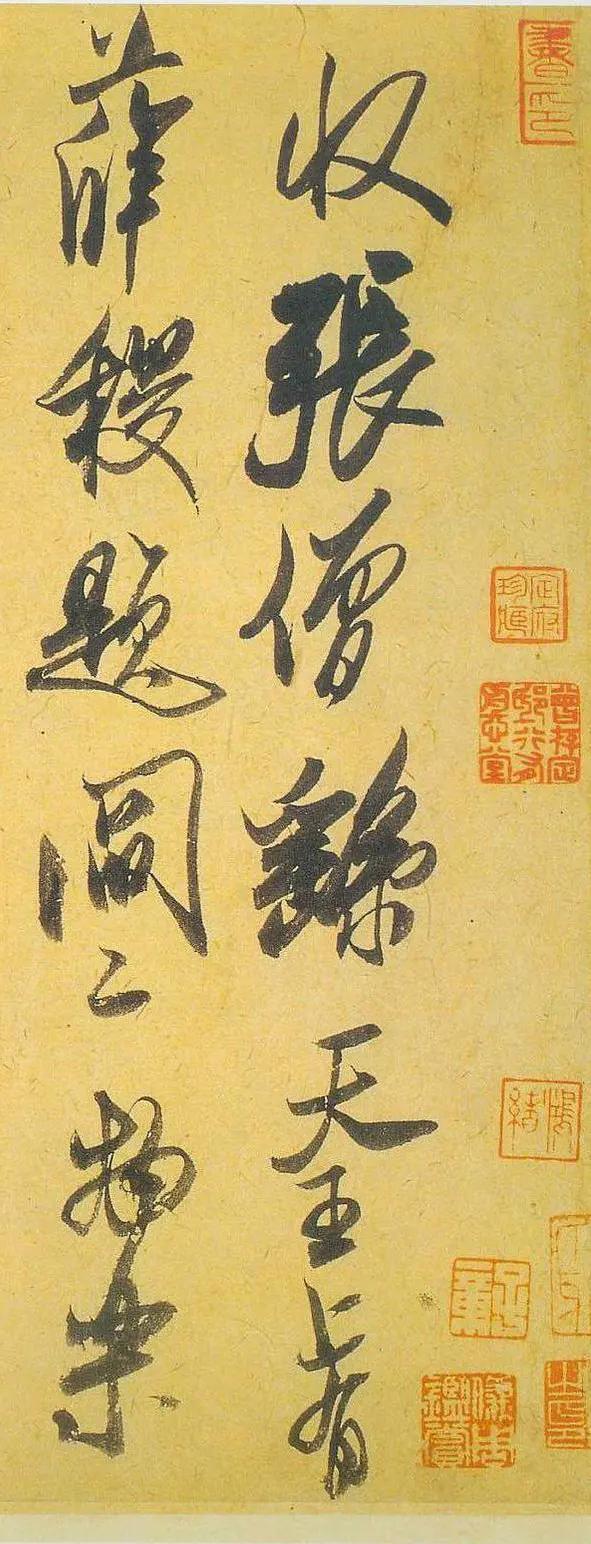 收張僧繇天王上有
薛稷題閻二物樂